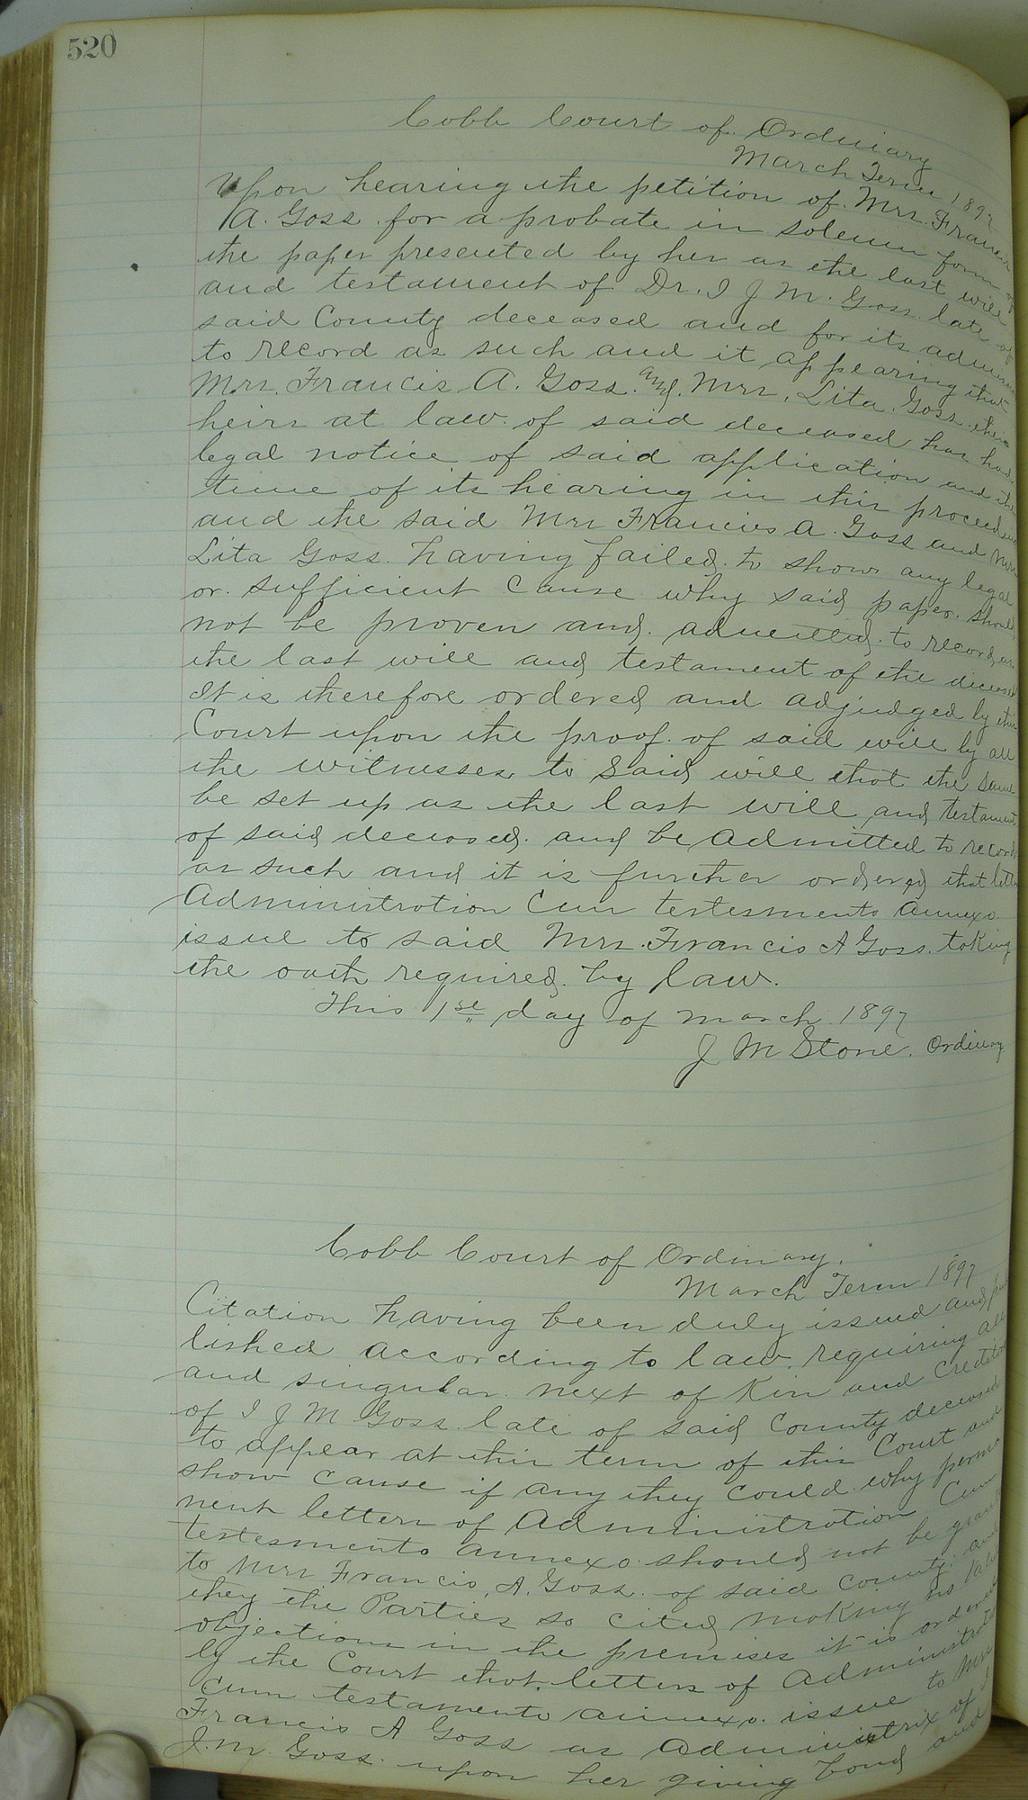 520
Cobb Court of Ordinary
March Term 1897
Upon hearing the petition of Mrs. Francis
A. Goss for a probate in solemn form of
the paper presented by her as the last will
and testament of Dr. I J M. Goss late of
said County deceased and for its
to record as such and it appearing that
Mrs. Francis A. Goss and Mrs. Lita Goss the
heirs at law of said deceased has had
legal notice of said application and the
time of its hearing in this
and the said Mrs Francies A. Goss and Mrs
Lita Goss having failed to show any legal
or sufficient cause why said paper should
not be proven and admitted to record as
the last will and testament of the deceased
It is therefore ordered and adjudged by this
Court upon the proof of said will by all
the witnesses to said will that the same
be set up as the last will and testament
of said deceased and be admitted to record
as such and it is further ordered that letters
Administration Cum testesments annexo
issue to said Mrs. Francis A Goss taking
the oath required by law.
This 1st day of March 1897
J M Stone. Ordinary
Cobb Court of Ordinary.
March Term 1897
Citation having been duly issued and pub
lished according to law requiring all
and singular next of Kin and creditors
of I J M Goss late of said County deceased
to appear at this term of this Court and
show cause if any they could why perma
nent letters of Administration Cum
testesmento annexo should not be granted
to Mrs Francis A. Goss of said County and
they the Parties so cited making no valid
objections in the premises it is ordered
by the Court that letters of Administration
cum testamento annexo issue to Mrs
Francis A Goss as Administratrix of I
J. M. Goss upon her giving bond and